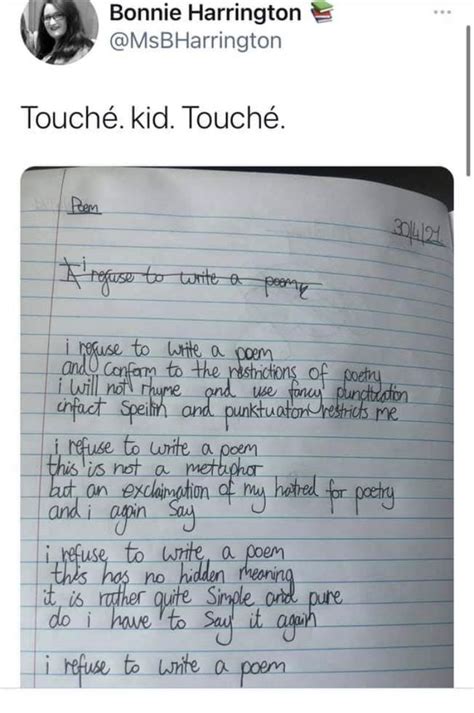 Bonnie Harrington 📚
@MsBHarrington
Touché. kid. Touché.
Poem
30/4/21
i refuse to write a poem
i refuse to write a poem
and conform to the restrictions of poetry
i will not rhyme and use fancy punctuation
infact Speitin and punktuaton restricts me
i refuse to write a poem
this is not a metaphor
but an exclaimation of my hatred for poetry
and i again Say
i refuse to write a poem
this has no hidden meaning
it is rather quite Simple and pure
do i have to Say it again
i refuse to write a poem